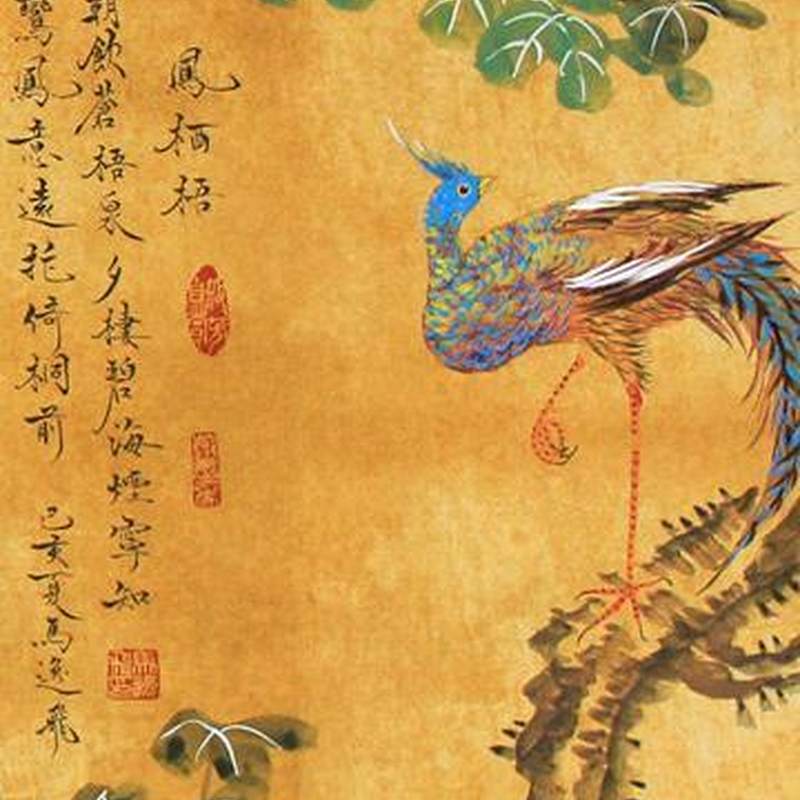 鳳栖梧
朝飲蒼梧泉夕棲碧海煙寧知
鸞鳳意遠托倚桐前
己亥夏馬逸飛